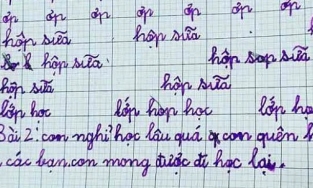 ớp ớp ớp ớp ớp ớp ớp
hộp sữa hộp sữa
hộp sữa hộp sữa
hộp sữa hộp sữa
lớp học lớp họp học lớp họ
Bài 2: con nghỉ học lâu quá con quên
các bạn. con mong được đi học lại.